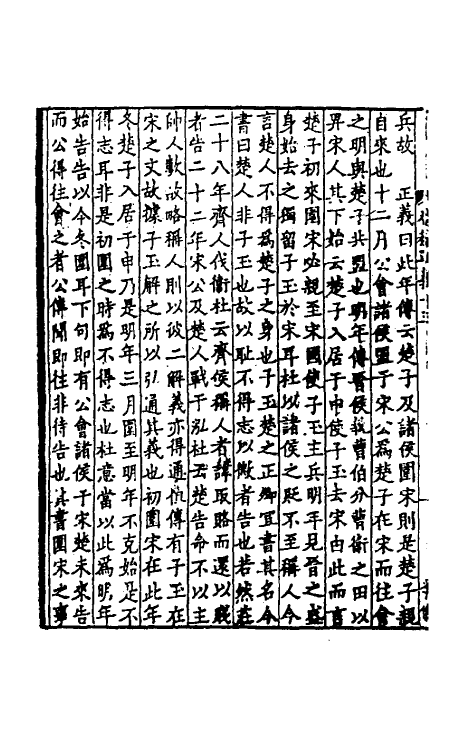 兵故　正義曰此年傳云楚子及諸侯圍宋則是楚子親
自來也十二月公會諸侯盟于宋公為楚子在宋而往會
之明與楚子共盟也明年傳晉侯執曹伯分曹衛之田以
畀宋人其下始云楚子入居于申使子玉去宋由此而言
楚子初來圍宋必親至宋國使子玉主兵明年見晉之盛
身始去之獨留子玉於宋耳杜以諸侯之貶不至稱人今
言楚人不得為楚子之身也子玉楚之正卿宜書其名今
書曰楚人非子玉也故以恥不得志以微者告也若然莊
二十八年齊人伐衛杜云齊侯稱人者諱取賂而還以賤
者告二十二年宋公及楚人戰于泓杜云楚告命不以主
帥人數故略稱人則以彼二解義亦得通但傳有子玉在
宋之文故據子玉解之所以引通其義也初圍宋在此年
冬楚子入居于申乃是明年三月圍至明年不克始是不
得志耳非是初圍之時為不得志也杜意當以此為明年
始告告以今冬圍耳下句即有公會諸侯于宋楚未來告
而公得往會之者公傳聞即往非待告也其書圍宋之事